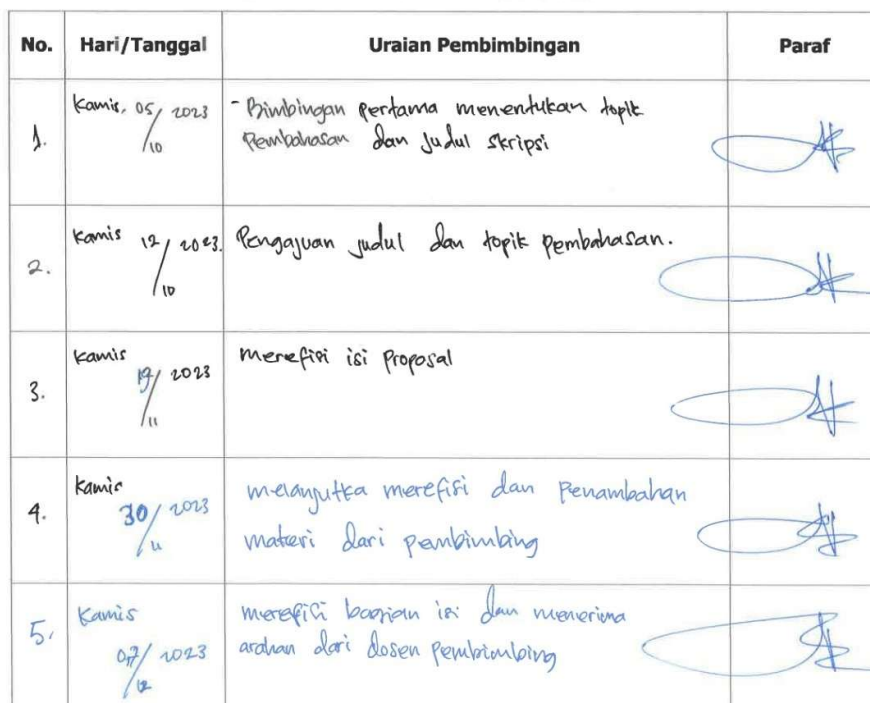 No. Hari/Tanggal Uraian Pembimbingan Paraf
1. Kamis, 05/10 2023 - Bimbingan pertama menentukan topik
Pembahasan dan judul skripsi
2. Kamis 12/10 2023. Pengajuan judul dan topik pembahasan.
3. Kamis 19/11 2023 merefisi isi Proposal
4. Kamis 30/11 2023 melanjutka merefisi dan Penambahan
materi dari pembimbing
5. Kamis 07/12 2023 merefisi bagian isi dan menerima
arahan dari dosen pembimbing